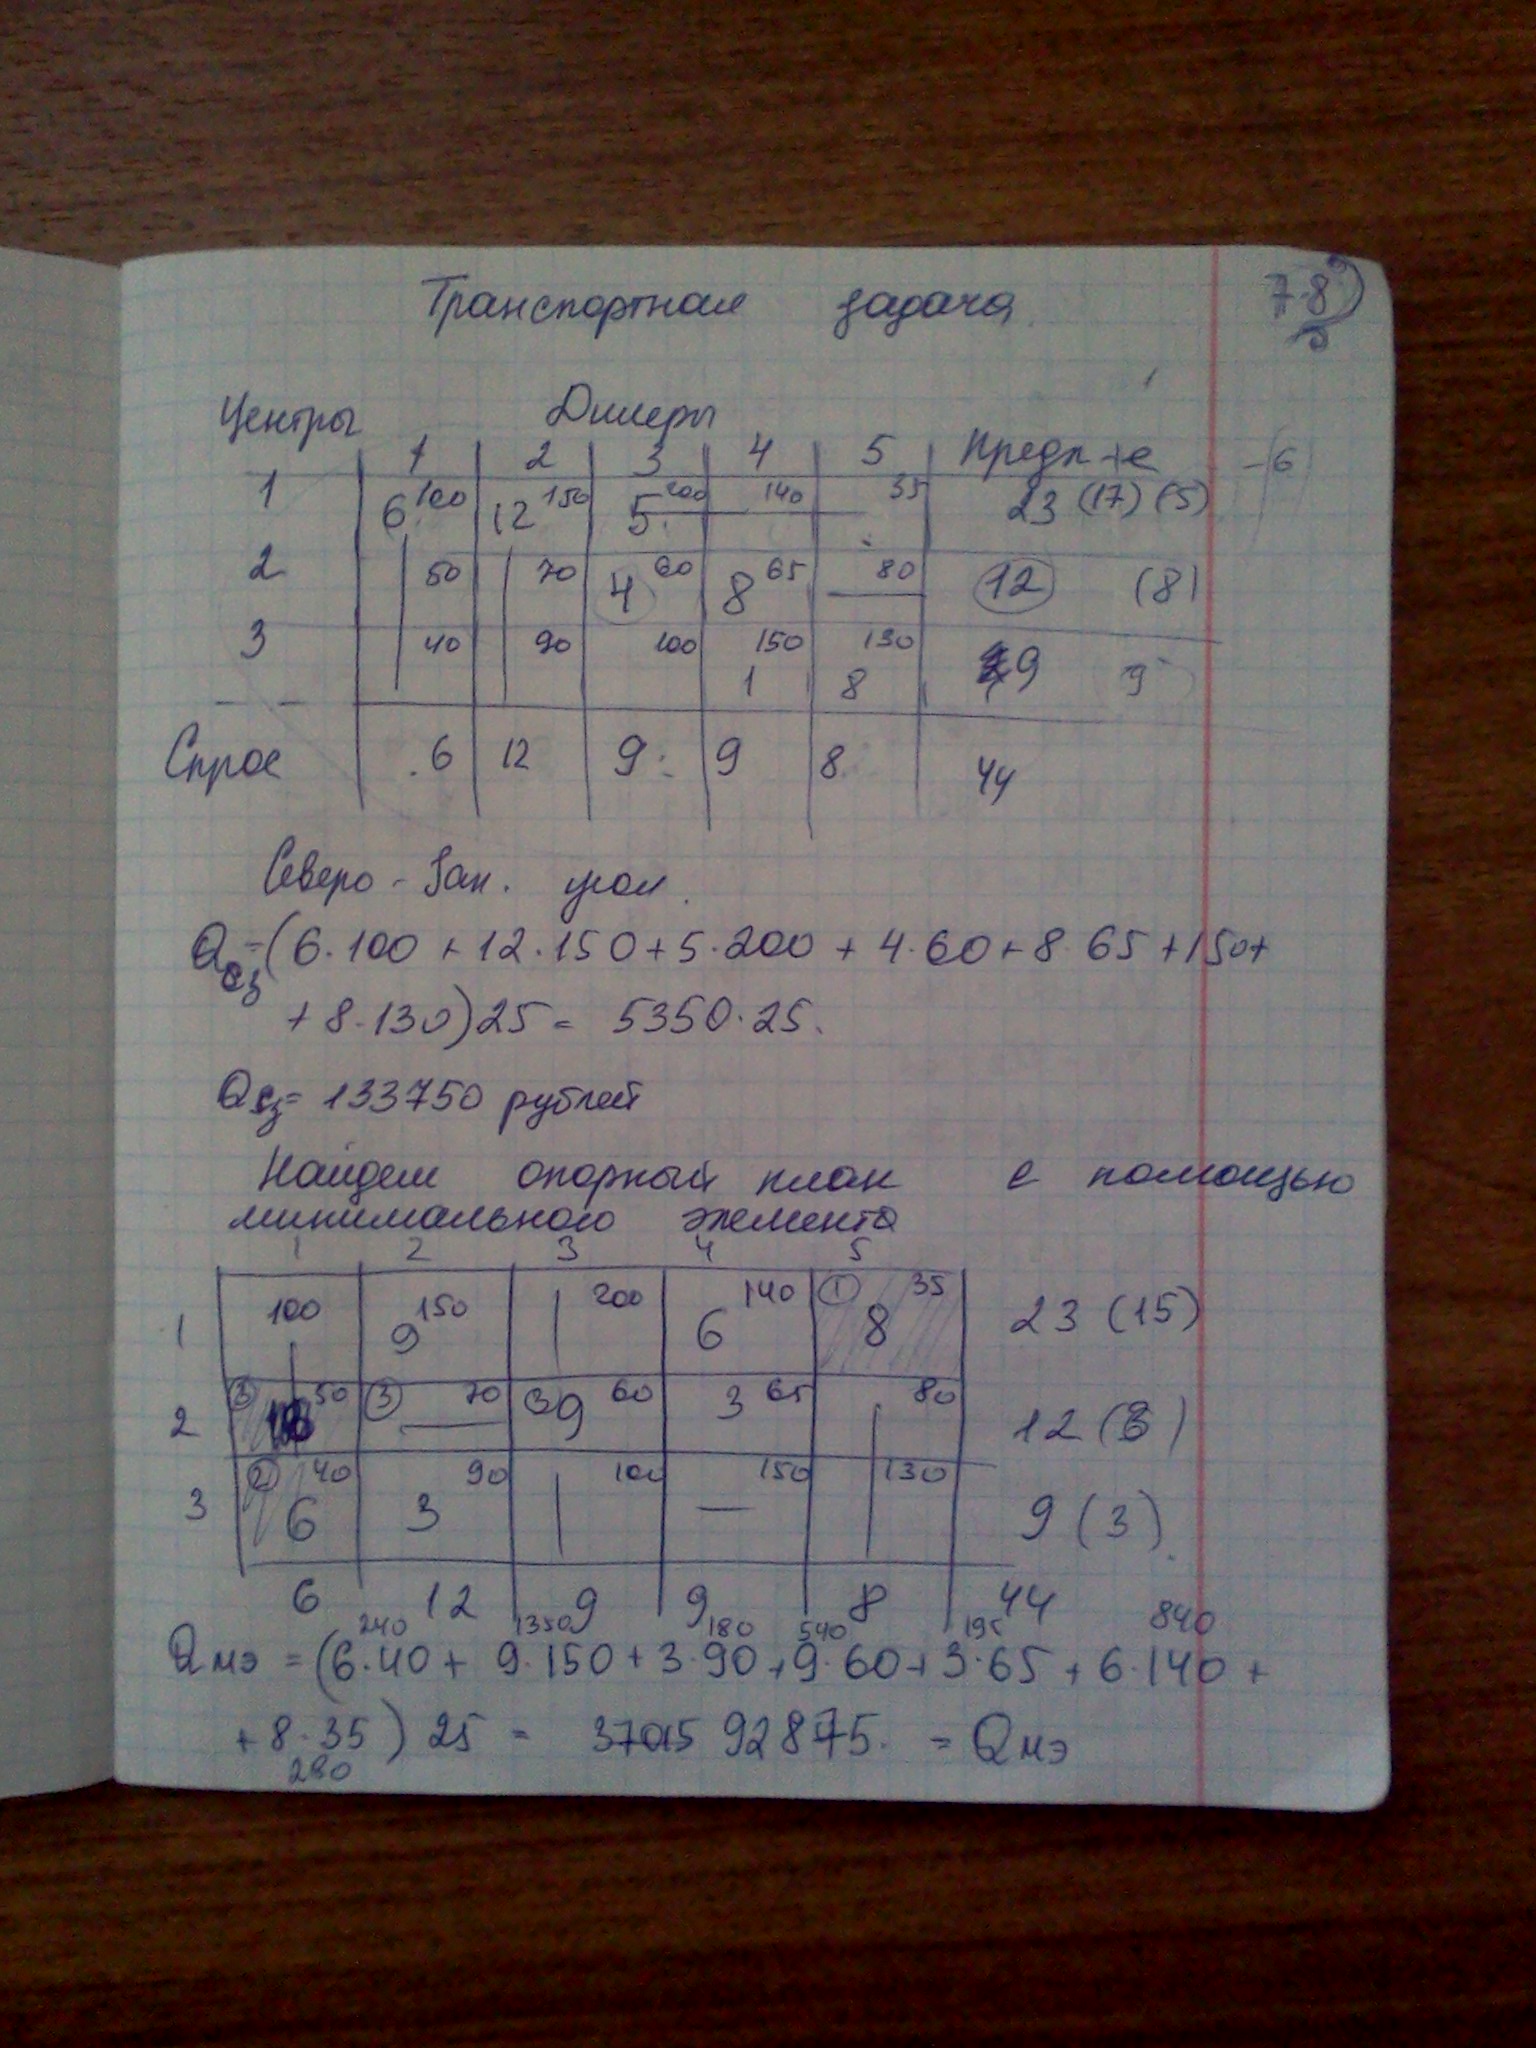 Транспортная задача
Центры Дилеры
1 2 3 4 5 Предл-е -6
1 6 100 12 150 5 200 140 35 23 (17) (5)
2 50 70 4 60 8 65 80 12 (8)
3 40 90 100 150 1 130 8 9 9
Спрос 6 12 9 9 8 44
Северо-Зап. угол.
Qсз=(6·100+12·150+5·200+4·60+8·65+150+
+8·130)25= 5350·25.
Qсз= 133750 рублей
Найдем опорный план с помощью
минимального элемента
1 2 3 4 5
1 100 9 150 200 6 140 1 8 35 23 (15)
2 3 50 3 70 3 9 60 3 65 80 12 (3)
3 2 6 40 3 90 100 150 130 9 (3)
6 12 9 9 8 44
240 1350 180 540 195 840
Qмэ = (6·40+ 9·150+3·90+9·60+3·65+6·140+
+8·35) 25 = 3715 92875. = Qмэ
280